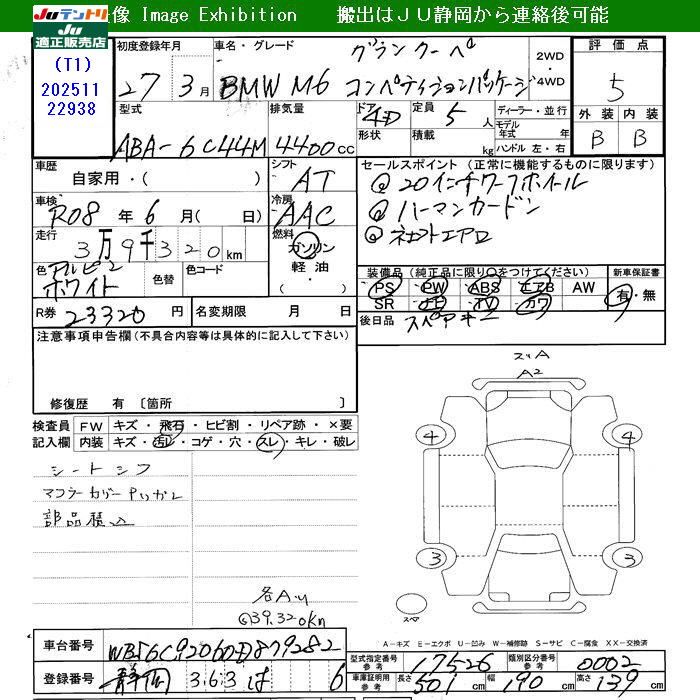 像 Image Exhibition 搬出はＪＵ静岡から連絡後可能
JUテントリ
JU
適正販売店
(T1)
202511
22938
初度登録年月
27年 3月
車名・グレード
グランクーペ
BMW M6 コンペティションパッケージ
2WD
・
4WD
評価点
5
外装 内装
B B
型式
ABA-6C44M
排気量
4400cc
ドア 4D
形状
定員 5人
積載 kg
ディーラー・並行
モデル年式 年
ハンドル 左・右
車歴
自家用・( )
シフト
AT
車検
R08年 6月( 日)
冷房
AAC
走行
3万9千320km
燃料
ガソリン
軽油
・( )
色
ホワイト
色替
色コード
R券 23320円
名変期限 月 日
セールスポイント（正常に機能するものに限ります）
@20インチアワーフホイール
@ハーマンカードン
装備品（純正品に限り○をつけてください）
PS PW ABS エアB AW
SR ナビ カワ
新車保証書
有・無
後日品 スペアキー
注意事項申告欄（不具合内容等は具体的に記入して下さい）
修復歴 有〔箇所 〕
検査員記入欄
FW キズ・飛石・ヒビ割・リペア跡・×要
内装 キズ・汚レ・コゲ・穴・スレ・キレ・破レ
シートシワ
部品積込
各AU
39,320kn
スリA
A2
4 4
3 3
スペア
A－キズ E－エクボ U－凹み W－補修跡 S－サビ C－腐食 XX－交換済
車台番号
登録番号 静岡 363 は 6
型式指定番号 参考 17526
類別区分番号 参考 0002
車庫証明用 参考 長さ 501cm 幅 190cm 高さ 139cm